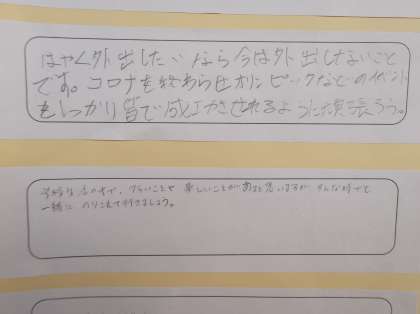 はやく外出したいなら今は外出しないこと
です。コロナを終わらせオリンピックなどのイベント
をしっかり皆で成功させれるように頑張ろう。
つらいことや 楽しいことがあると思いますが そんな時でも
一緒に のりこえて行きましょう。